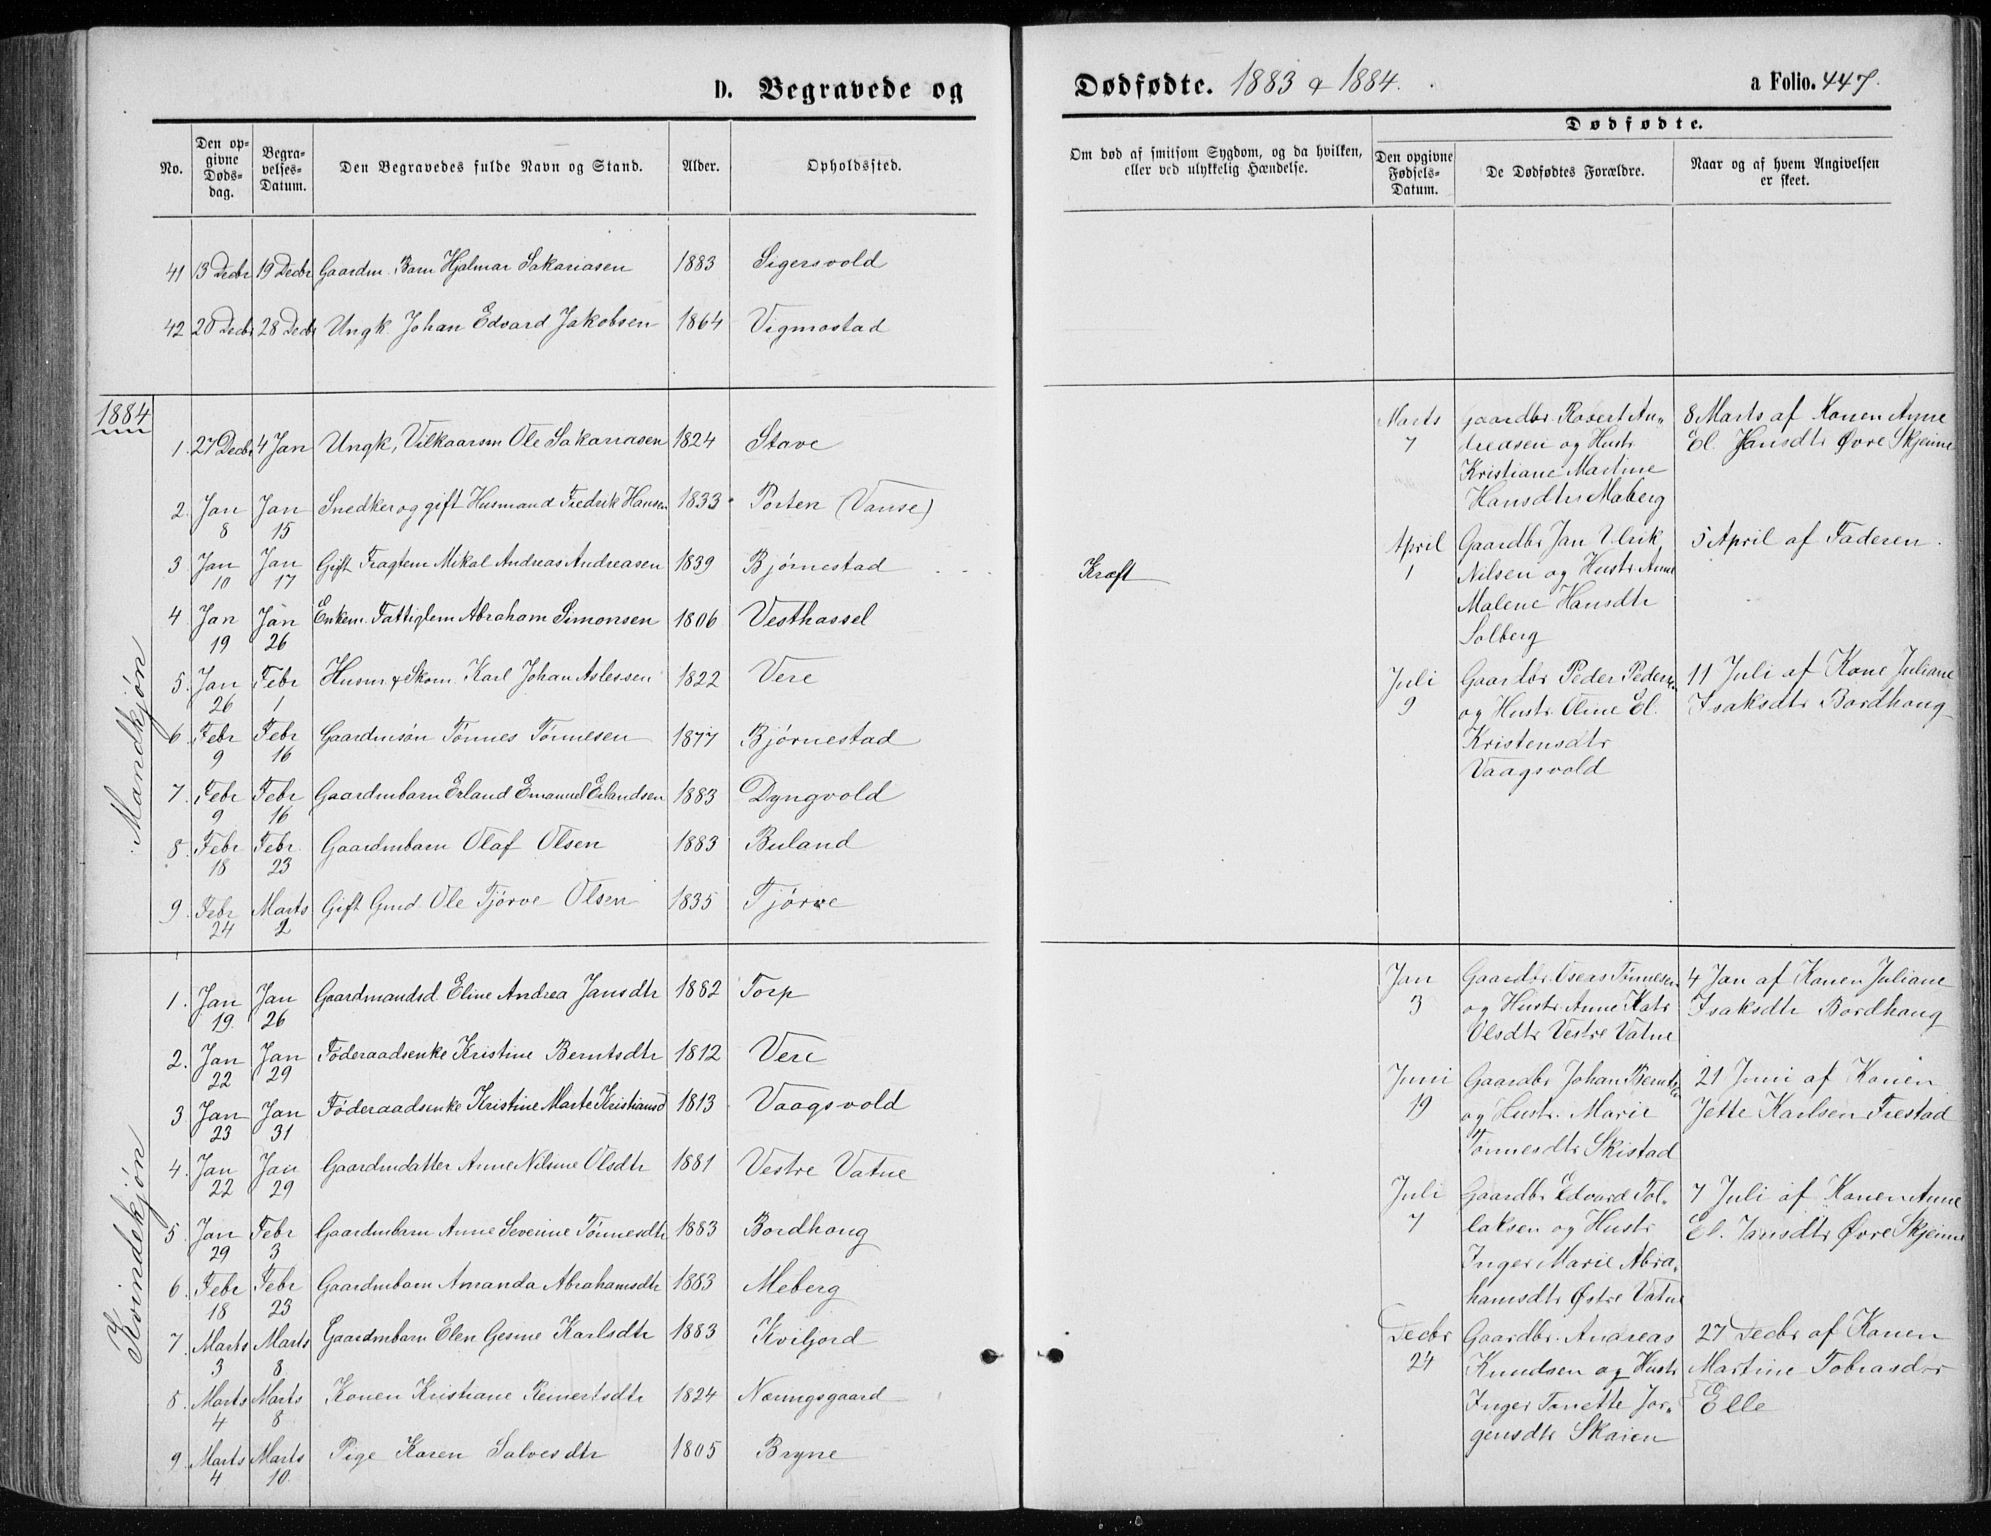 D. Begravede og
Dødfødte. 1883 & 1884.
a Folio. 447.
No.
Den opgivne Døds-dag.
Begravelses-Datum.
Den Begravedes fulde Navn og Stand.
Alder.
Opholdssted.
Om død af smitsom Sygdom, og da hvilken, eller ved ulykkelig Hændelse.
Dødfødte.
Den opgivne Fødsels-Datum.
De Dødfødtes Forældre.
Naar og af hvem Angivelsen er skeet.
41 13 Decbr 19 Decbr Gaardm. Barn Hjalmar Sakariasen 1883 Sigersvold
42 20 Decbr 28 Decbr Ungk. Johan Edvard Jakobsen 1864 Vigmostad
1884
Mandkjøn
1. 27 Decbr 4 Jan Ungk, Vilkaarsm Ole Sakariasen 1824 Stave
2. Jan 8 Jan 15 Snedker og gift Husmand Fredrik Hansen 1833 Porten (Vanse)
3 Jan 10 Jan 17 Gift Fragtem Mikal Andreas Andreasen 1839 Bjørnestad Kræft
4 Jan 19 Jan 26 Enkem. Fattiglem Abraham Simonsen 1806 Vesthassel
5. Jan 26 Febr 1 Husm & Skom. Karl Johan Aslessen 1822 Vere
6 Febr 9 Febr 16 Gaardmsøn Tønnes Tønnesen 1877 Bjørnestad
7. Febr 9 Febr 16 Gaardmbarn Erland Emanuel Erlandsen 1883 Dyngvold
8. Febr 18 Febr 23 Gaardmbarn Olaf Olsen 1883 Buland
9. Febr 24 Marts 2 Gift Gmd. Ole Tjørve Olsen 1835 Tjørve
Marts 7
Gaardbr Robert An-
dreasen og Hustr
Kristiane Martine
Hansdtr Maberg
8 Marts af Konen Anne
El. Jansdtr Øvre Skjeime
April 1
Gaardbr Jan Ulrik
Nilsen og Hustr Anne
Malene Hansdtr
Solberg
5 April af Faderen.
Juli 9
Gaardbr Peder Pedersen
og Hustr. Oline El.
Kristensdtr
Vaagsvold
11 Juli af Kone Juliane
Isaksdtr Bordhoug
Kvindekjøn
1. Jan 19. Jan 26 Gaardmandsd Eline Andrea Jansdtr 1882 Torp
2. Jan 22 Jan 29 Føderaadsenke Kristine Berntsdtr 1812 Vere
3 Jan 23 Jan 31 Føderaadsenke Kristine Marte Kristiansd 1813 Vaagsvold
4. Jan 22 Jan 29 Gaardmdatter Anne Nilsine Olsdtr 1881 Vestre Vatne
5. Jan 29 Febr 3 Gaardmbarn Anne Severine Tønnesdtr 1883 Bordhoug
6. Febr 18 Febr 23 Gaardmbarn Amanda Abrahamsdtr 1883 Meberg
7. Marts 3 Marts 8 Gaardmbarn Elen Gesine Karlsdtr 1883 Kviljord
8. Marts 4 Marts 8 Konen Kristiane Reinertsdtr 1824 Næringsgaard
9. Marts 4 Marts 10. Pige Karen Salvesdtr 1805 Bryne
Jan 3
Gaardbr. Oseas Tønnesen
og Hustr. Anne Katr
Olsdtr Vestre Vatne
4 Jan af Konen Juliane
Isaksdtr Bordhoug
Juni 19
Gaardbr Johan Berntsen
og Hustr. Marie
Tønnesdtr Skistad
21 Juni af Konen
Jette Karlsen Frestad
Juli 7
Gaardbr Edvard Tol-
laksen og Hustr
Inger Marie Abra-
hamsdtr Østre Vatne
7 Juli af Konen Anne
El. Jansdtr Øvre Skjeime
Decbr 24
Gaardbr. Andreas
Knudsen og Hustr
Inger Tonette Jør-
gensdtr Skaien
27 Decbr af Konen
Martine Tobiasdtr
Elle